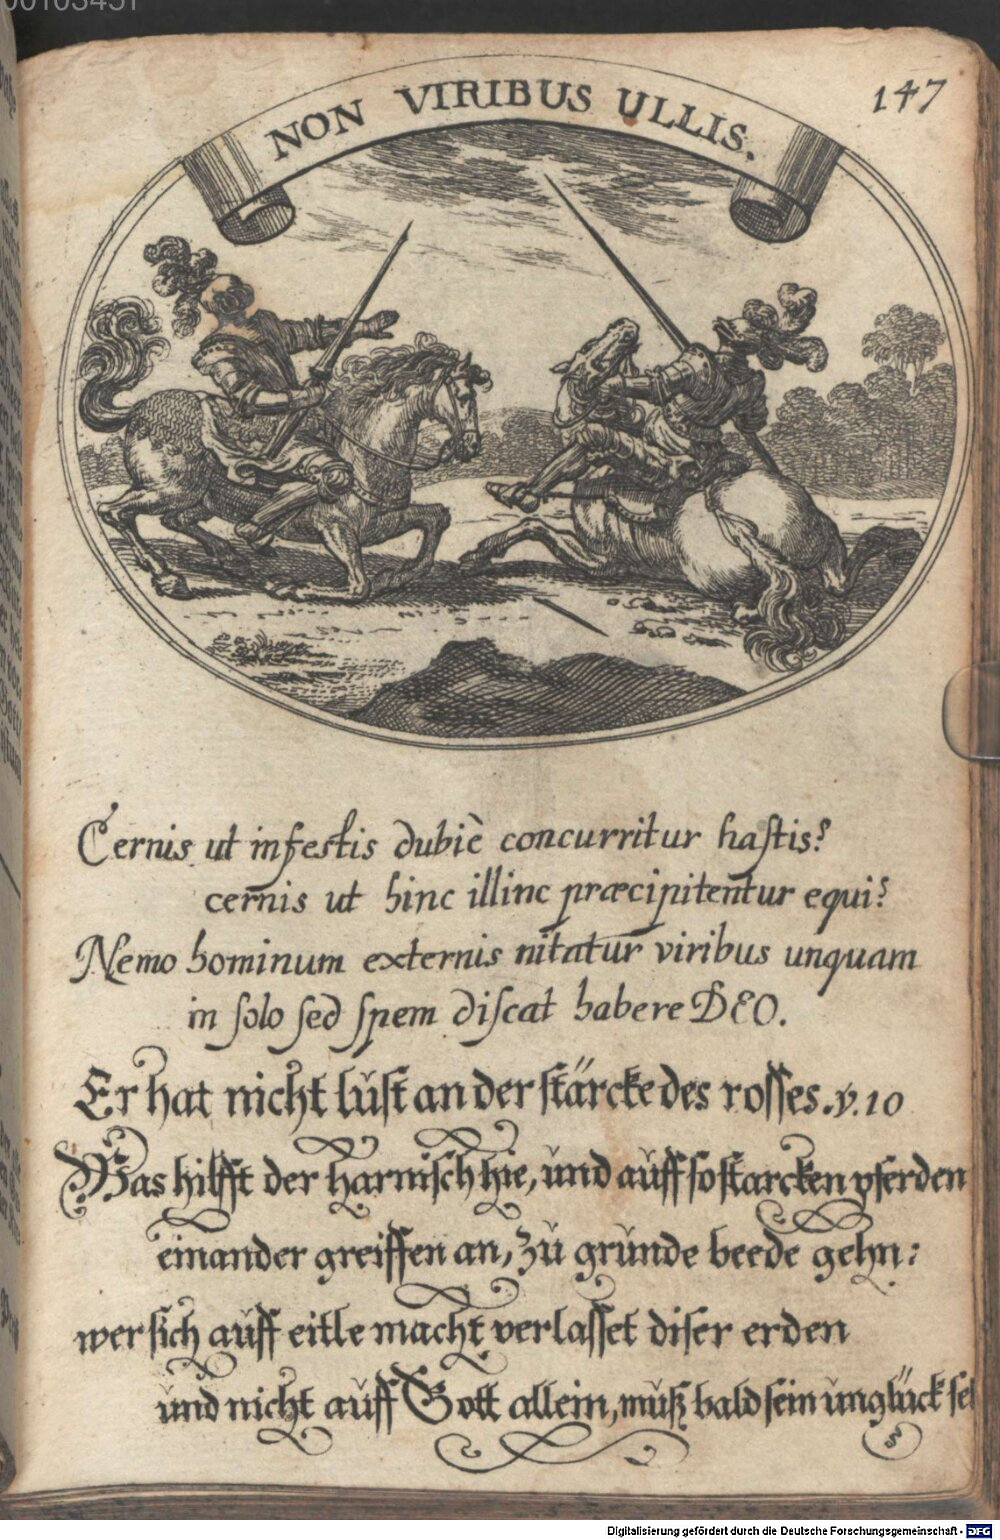 147
NON VIRIBUS ULLIS.
Cernis ut infestis dubiè concurritur hastis?
cernis ut hinc illinc præcipitentur equi?
Nemo hominum externis nitatur viribus unquam
in solo sed spem discat habere DEO.
Er hat nicht lust an der stärcke des rosses. v. 10
Was hilfft der harnisch hie, und auff so starcken pferden
einander greiffen an, zu grunde beede gehn:
wer sich auff eitle macht verlasset diser erden
und nicht auff Gott allein, muß bald sein unglück se
Digitalisierung gefördert durch die Deutsche Forschungsgemeinschaft - DFG